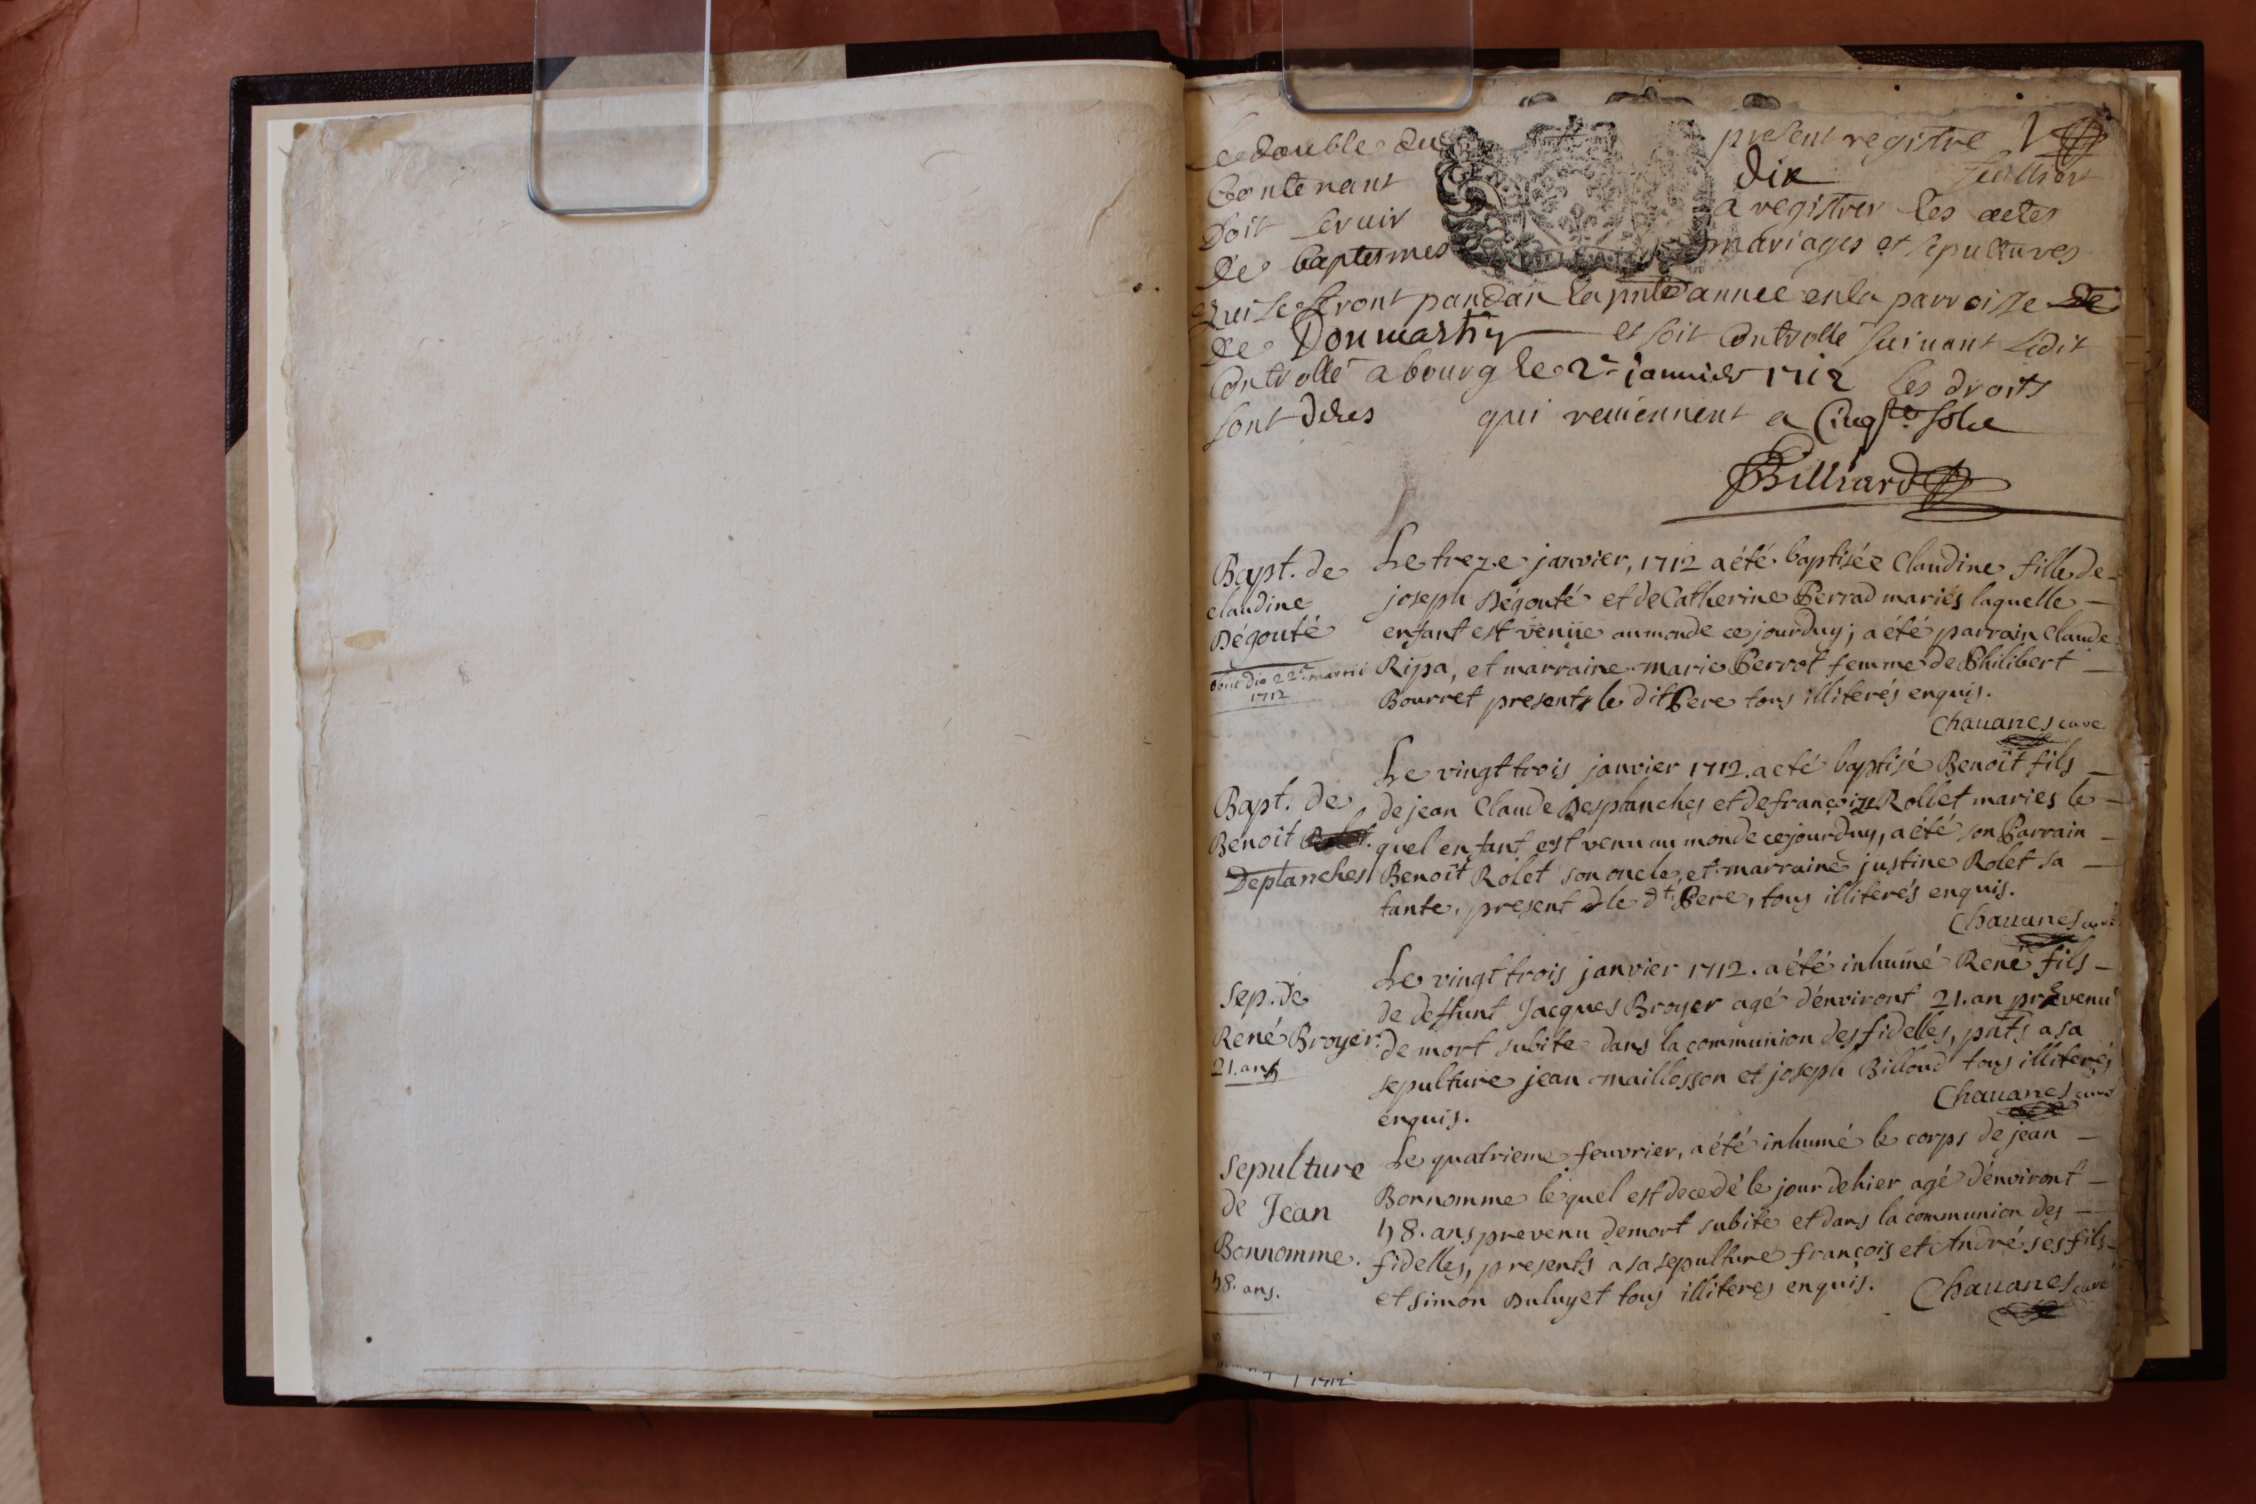 Le double du present registre 1
Contenant dix feuillets
Doit servir a registrer les actes
de baptesmes mariages et sepultures
qui se feront pandan la pnte annee en la parroisse de
de Donmartin et soit Controllé suivant Ledit
Controllé a bourg le 2e janvier 1712 les droits
sont qui reviennent a Cinqte sols
Billiard
Bapt. de
claudine
Dégouté
1712
Le treze janvier, 1712 a été baptisée Claudine fille de
joseph Dégouté et de Catherine Perrad mariés laquelle
enfant est venüe au monde ce jourduy; a été parrain Claude
Ripa, et marraine marie Perrot femme de Philibert
Bourret presents le dit Pere tous illiterés enquis.
Chavanes curé
Bapt. de
Benoit
Deplanches
Le vingt trois janvier 1712. a eté baptisé Benoît fils
de jean Claude Desplanches et de françoize Rollet maries le
quel enfant est venu au monde cejourduy, a été son Parrain
Benoît Rolet son oncle, et marraine justine Rolet sa
tante, present le dt. Pere, tous illiterés enquis.
Chavanes curé
Sep. de
René Broyer.
21. ans
Le vingt trois janvier 1712. a été inhumé René fils
de deffunt Jacques Broyer agé d'environt 21. an prevenu
de mort subite dans la communion des fidelles, pnts a sa
sepulture jean maillosson et joseph Billoud tous illiterés
enquis.
Chavanes curé
Sepulture
de Jean
Bonnomme.
48. ans.
Le quatrieme feuvrier, a été inhumé le corps de jean
Bonnomme le quel est decedé le jour de hier agé d'environt
48. ans prevenu de mort subite et dans la communion des
fidelles, presents a sa sepulture françois et André ses fils
et simon Duluyet tous illiteres enquis. Chavanes curé
1712